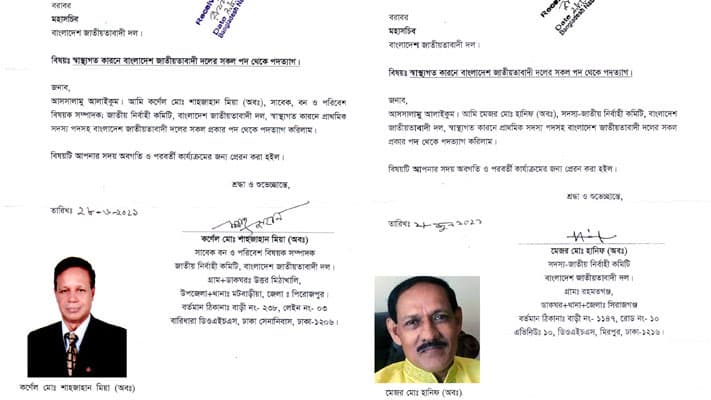 বরাবর
মহাসচিব
বাংলাদেশ জাতীয়তাবাদী দল।
বিষয়ঃ স্বাস্থ্যগত কারনে বাংলাদেশ জাতীয়তাবাদী দলের সকল পদ থেকে পদত্যাগ।
জনাব,
আসসালামু আলাইকুম। আমি কর্ণেল মোঃ শাহজাহান মিয়া (অবঃ), সাবেক, বন ও পরিবেশ
বিষয়ক সম্পাদক; জাতীয় নির্বাহী কমিটি, বাংলাদেশ জাতীয়তাবাদী দল, স্বাস্থ্যগত কারনে প্রাথমিক
সদস্য পদসহ বাংলাদেশ জাতীয়তাবাদী দলের সকল প্রকার পদ থেকে পদত্যাগ করিলাম।
বিষয়টি আপনার সদয় অবগতি ও পরবর্তী কার্যক্রমের জন্য প্রেরন করা হইল।
শ্রদ্ধা ও শুভেচ্ছান্তে,
তারিখঃ ২৮-৬-২০২১
কর্ণেল মোঃ শাহজাহান মিয়া (অবঃ)
সাবেক বন ও পরিবেশ বিষয়ক সম্পাদক
জাতীয় নির্বাহী কমিটি, বাংলাদেশ জাতীয়তাবাদী দল।
গ্রাম+ডাকঘরঃ উত্তর মিঠাখালি,
উপজেলা+থানাঃ মটবাড়ীয়া, জেলা ঃ পিরোজপুর।
বর্তমান ঠিকানাঃ বাড়ী নং- ২৩৮, লেইন নং- ০৩
বারিধারা ডিওএইচএস, ঢাকা সেনানিবাস, ঢাকা-১২০৬।
কর্ণেল মোঃ শাহজাহান মিয়া (অবঃ)
বরাবর
মহাসচিব
বাংলাদেশ জাতীয়তাবাদী দল।
বিষয়ঃ স্বাস্থ্যগত কারনে বাংলাদেশ জাতীয়তাবাদী দলের সকল পদ থেকে পদত্যাগ।
জনাব,
আসসালামু আলাইকুম। আমি মেজর মোঃ হানিফ (অবঃ), সদস্য-জাতীয় নির্বাহী কমিটি, বাংলাদেশ
জাতীয়তাবাদী দল, স্বাস্থ্যগত কারনে প্রাথমিক সদস্য পদসহ বাংলাদেশ জাতীয়তাবাদী দলের সকল
প্রকার পদ থেকে পদত্যাগ করিলাম।
বিষয়টি আপনার সদয় অবগতি ও পরবর্তী কার্যক্রমের জন্য প্রেরন করা হইল।
শ্রদ্ধা ও শুভেচ্ছান্তে,
তারিখঃ ২৮ জুন ২০২১
মেজর মোঃ হানিফ (অবঃ)
সদস্য-জাতীয় নির্বাহী কমিটি
বাংলাদেশ জাতীয়তাবাদী দল।
গ্রামঃ রহমতগঞ্জ,
ডাকঘর+থানা+জেলাঃ সিরাজগঞ্জ
বর্তমান ঠিকানাঃ বাড়ী নং- ১১৪৭, রোড নং- ১০
এভিনিউঃ ১০, ডিওএইচএস, মিরপুর, ঢাকা-১২১৬।
মেজর মোঃ হানিফ (অবঃ)